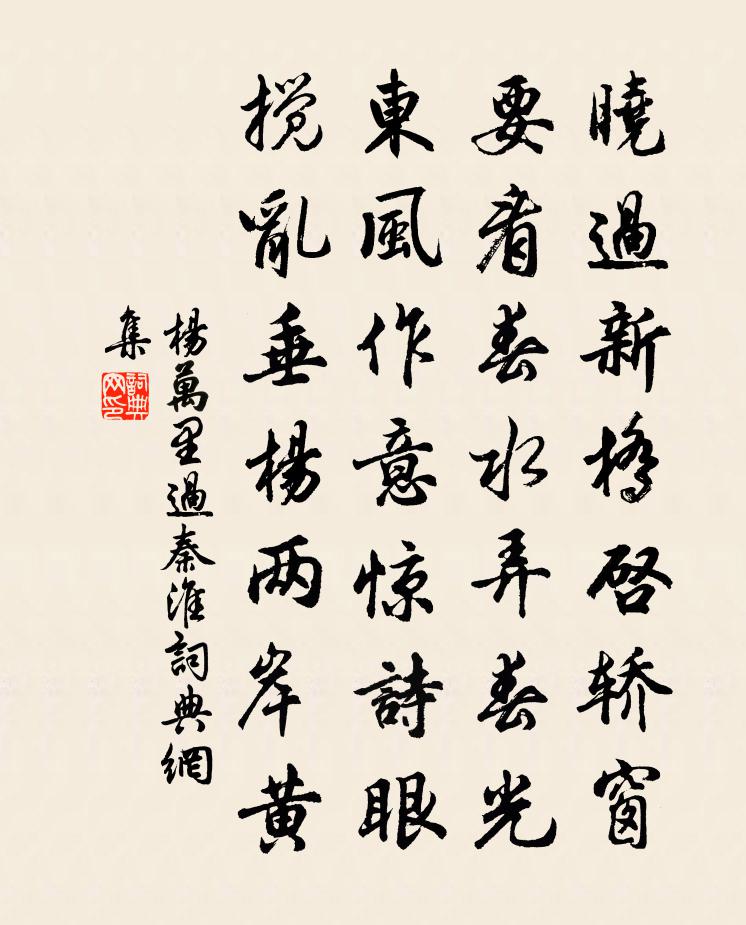 曉過新橋啓轿窗
要看春水弄春光
東風作意惊詩眼
搅亂垂楊两岸黄
楊萬里過秦淮詞典網
集
詞典
网印